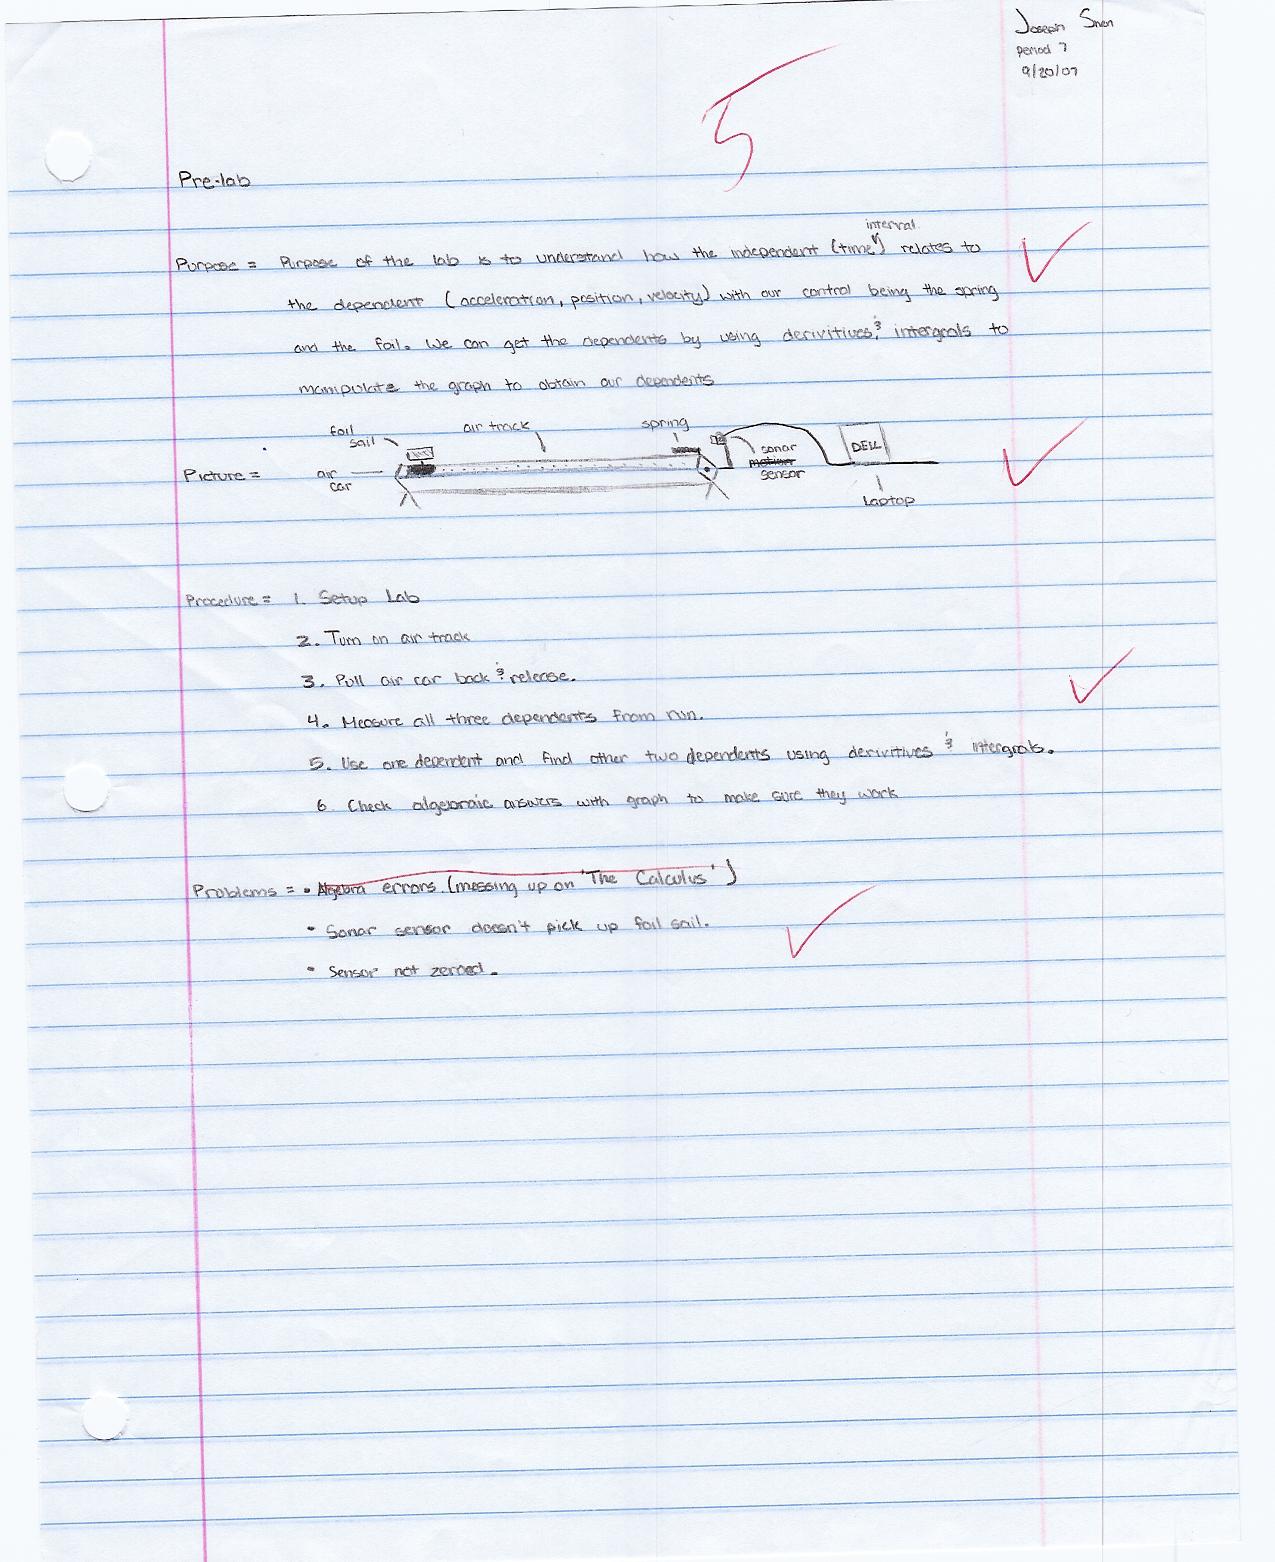 Joseph
period 7
9/20/07
5
Pre-lab
interval
Purpose = Purpose of the lab is to understand how the independent (time) relates to
the dependent (acceleration, position, velocity) with our control being the spring
and the foil. We can get the dependents by using derivitives & intergrals to
manipulate the graph to obtain our dependents
foil
sail
air track
spring
sonar
sensor
DELL
Picture =
air
car
Laptop
Procedure = 1. Setup Lab
2. Turn on air track
3. Pull air car back & release.
4. Measure all three dependents from run.
5. Use one dependent and find other two dependents using derivitives & intergrals.
6. Check algebraic answers with graph to make sure they work
Problems = • Algebra errors (messing up on 'The Calculus')
• Sonar sensor doesn't pick up foil sail.
• Sensor not zeroed.